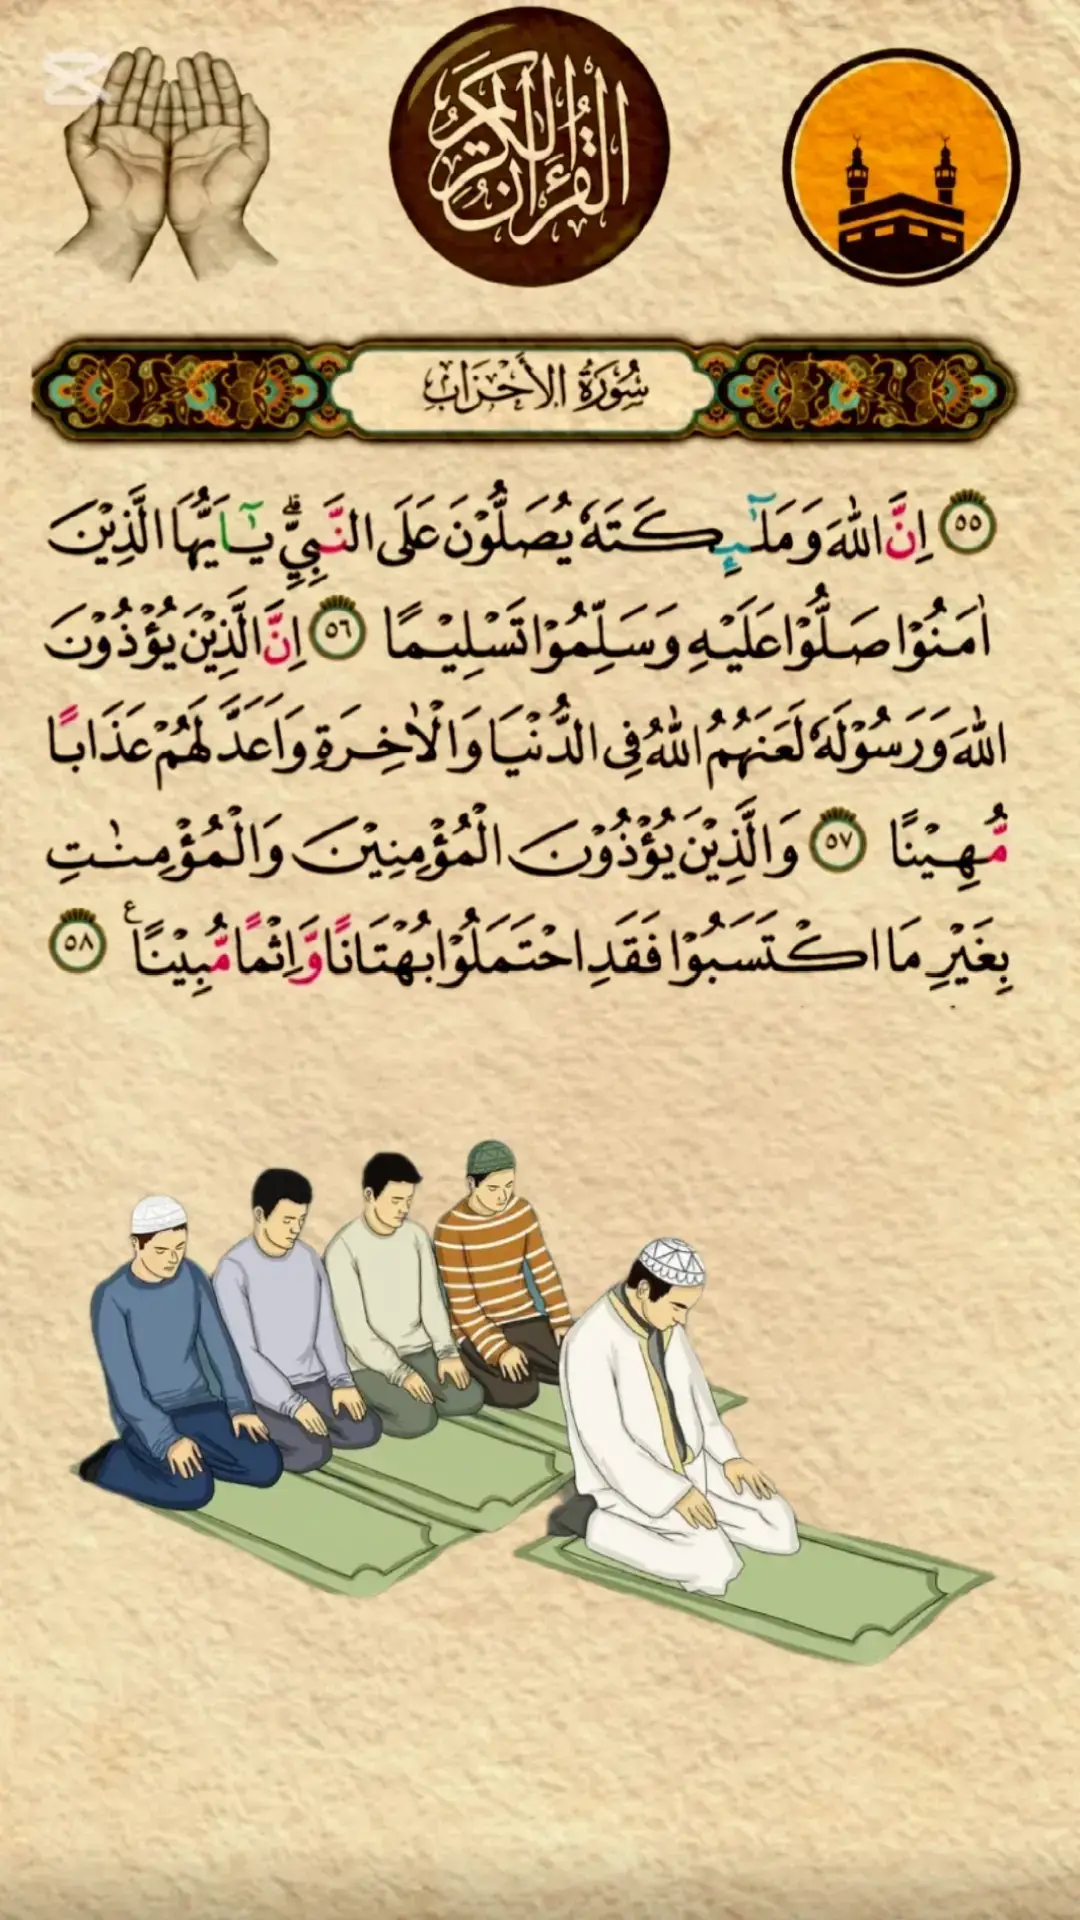 القرآن الكريم
سُورَةُ الأَحْزَابِ
٥٥ اِنَّ اللّٰهَ وَمَلٰٓئِكَتَهٗ يُصَلُّوْنَ عَلَى النَّبِيِّۗ يٰٓاَيُّهَا الَّذِيْنَ
اٰمَنُوْا صَلُّوْا عَلَيْهِ وَسَلِّمُوْا تَسْلِيْمًا ٥٦ اِنَّ الَّذِيْنَ يُؤْذُوْنَ
اللّٰهَ وَرَسُوْلَهٗ لَعَنَهُمُ اللّٰهُ فِى الدُّنْيَا وَالْاٰخِرَةِ وَاَعَدَّ لَهُمْ عَذَابًا
مُّهِيْنًا ٥٧ وَالَّذِيْنَ يُؤْذُوْنَ الْمُؤْمِنِيْنَ وَالْمُؤْمِنٰتِ
بِغَيْرِ مَا اكْتَسَبُوْا فَقَدِ احْتَمَلُوْا بُهْتَانًا وَّاِثْمًا مُّبِيْنًا ࣖ ٥٨